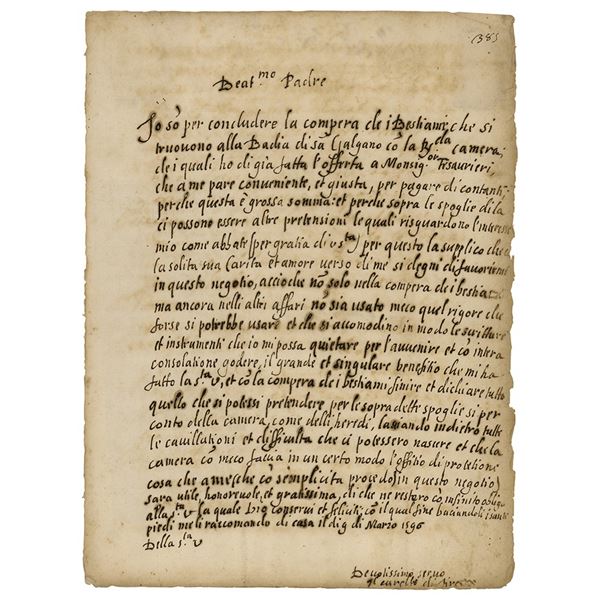 (385
Beat.mo Padre
Io sō per concludere la compera de i Bestiami, che si
truovono alla Badia di sā Galgano cō la R.da camera,
de i quali ho di già fatta l'offerta a Monsig.or Tesaurieri,
che a me pare conveniente, et giusta, per pagare di contanti
perche questa è grossa somma: et perche sopra le spoglie di la
ci possono essere altre pretensioni le quali risguardono l'interesse
mio come abbate (per gratia di v s.ta) per questo la supplico che
la solita sua Carità et amore verso di me si degni di favorirmi
in questo negotio, accioche nō solo nella compera de i bestiami
ma ancora nelli altri affari nō sia usato meco quel rigore che
forse si potrebbe usare et che si accomodino in modo le scritture
et instrumenti che io mi possa quietare per l'avvenire et cō intera
consolatione godere, il grande et singulare benefitio che mi ha
fatto la s.ta v, et cō la compera de i bestiami finire et dichiare tutto
quello che si potessi pretendere per le sopra dette spoglie si per
conto della camera, come delli heredi, lassando indietro tutte
le cavillationi et difficulta che ci potessero nascere et che la
camera cō meco faccia in un certo modo l'offitio di protetione
cosa che a me (che cō semplicita procedo in questo negotio)
sara utile, honorevole, et gratissima, di che ne restero cō infinito obligo
alla s.ta v la quale Dio conservi et feliciti, cō il qual fine baciandoli i santi
piedi me li raccomando di casa il dì 9 di Marzo 1596
Della s.ta v
Devotissimo servo